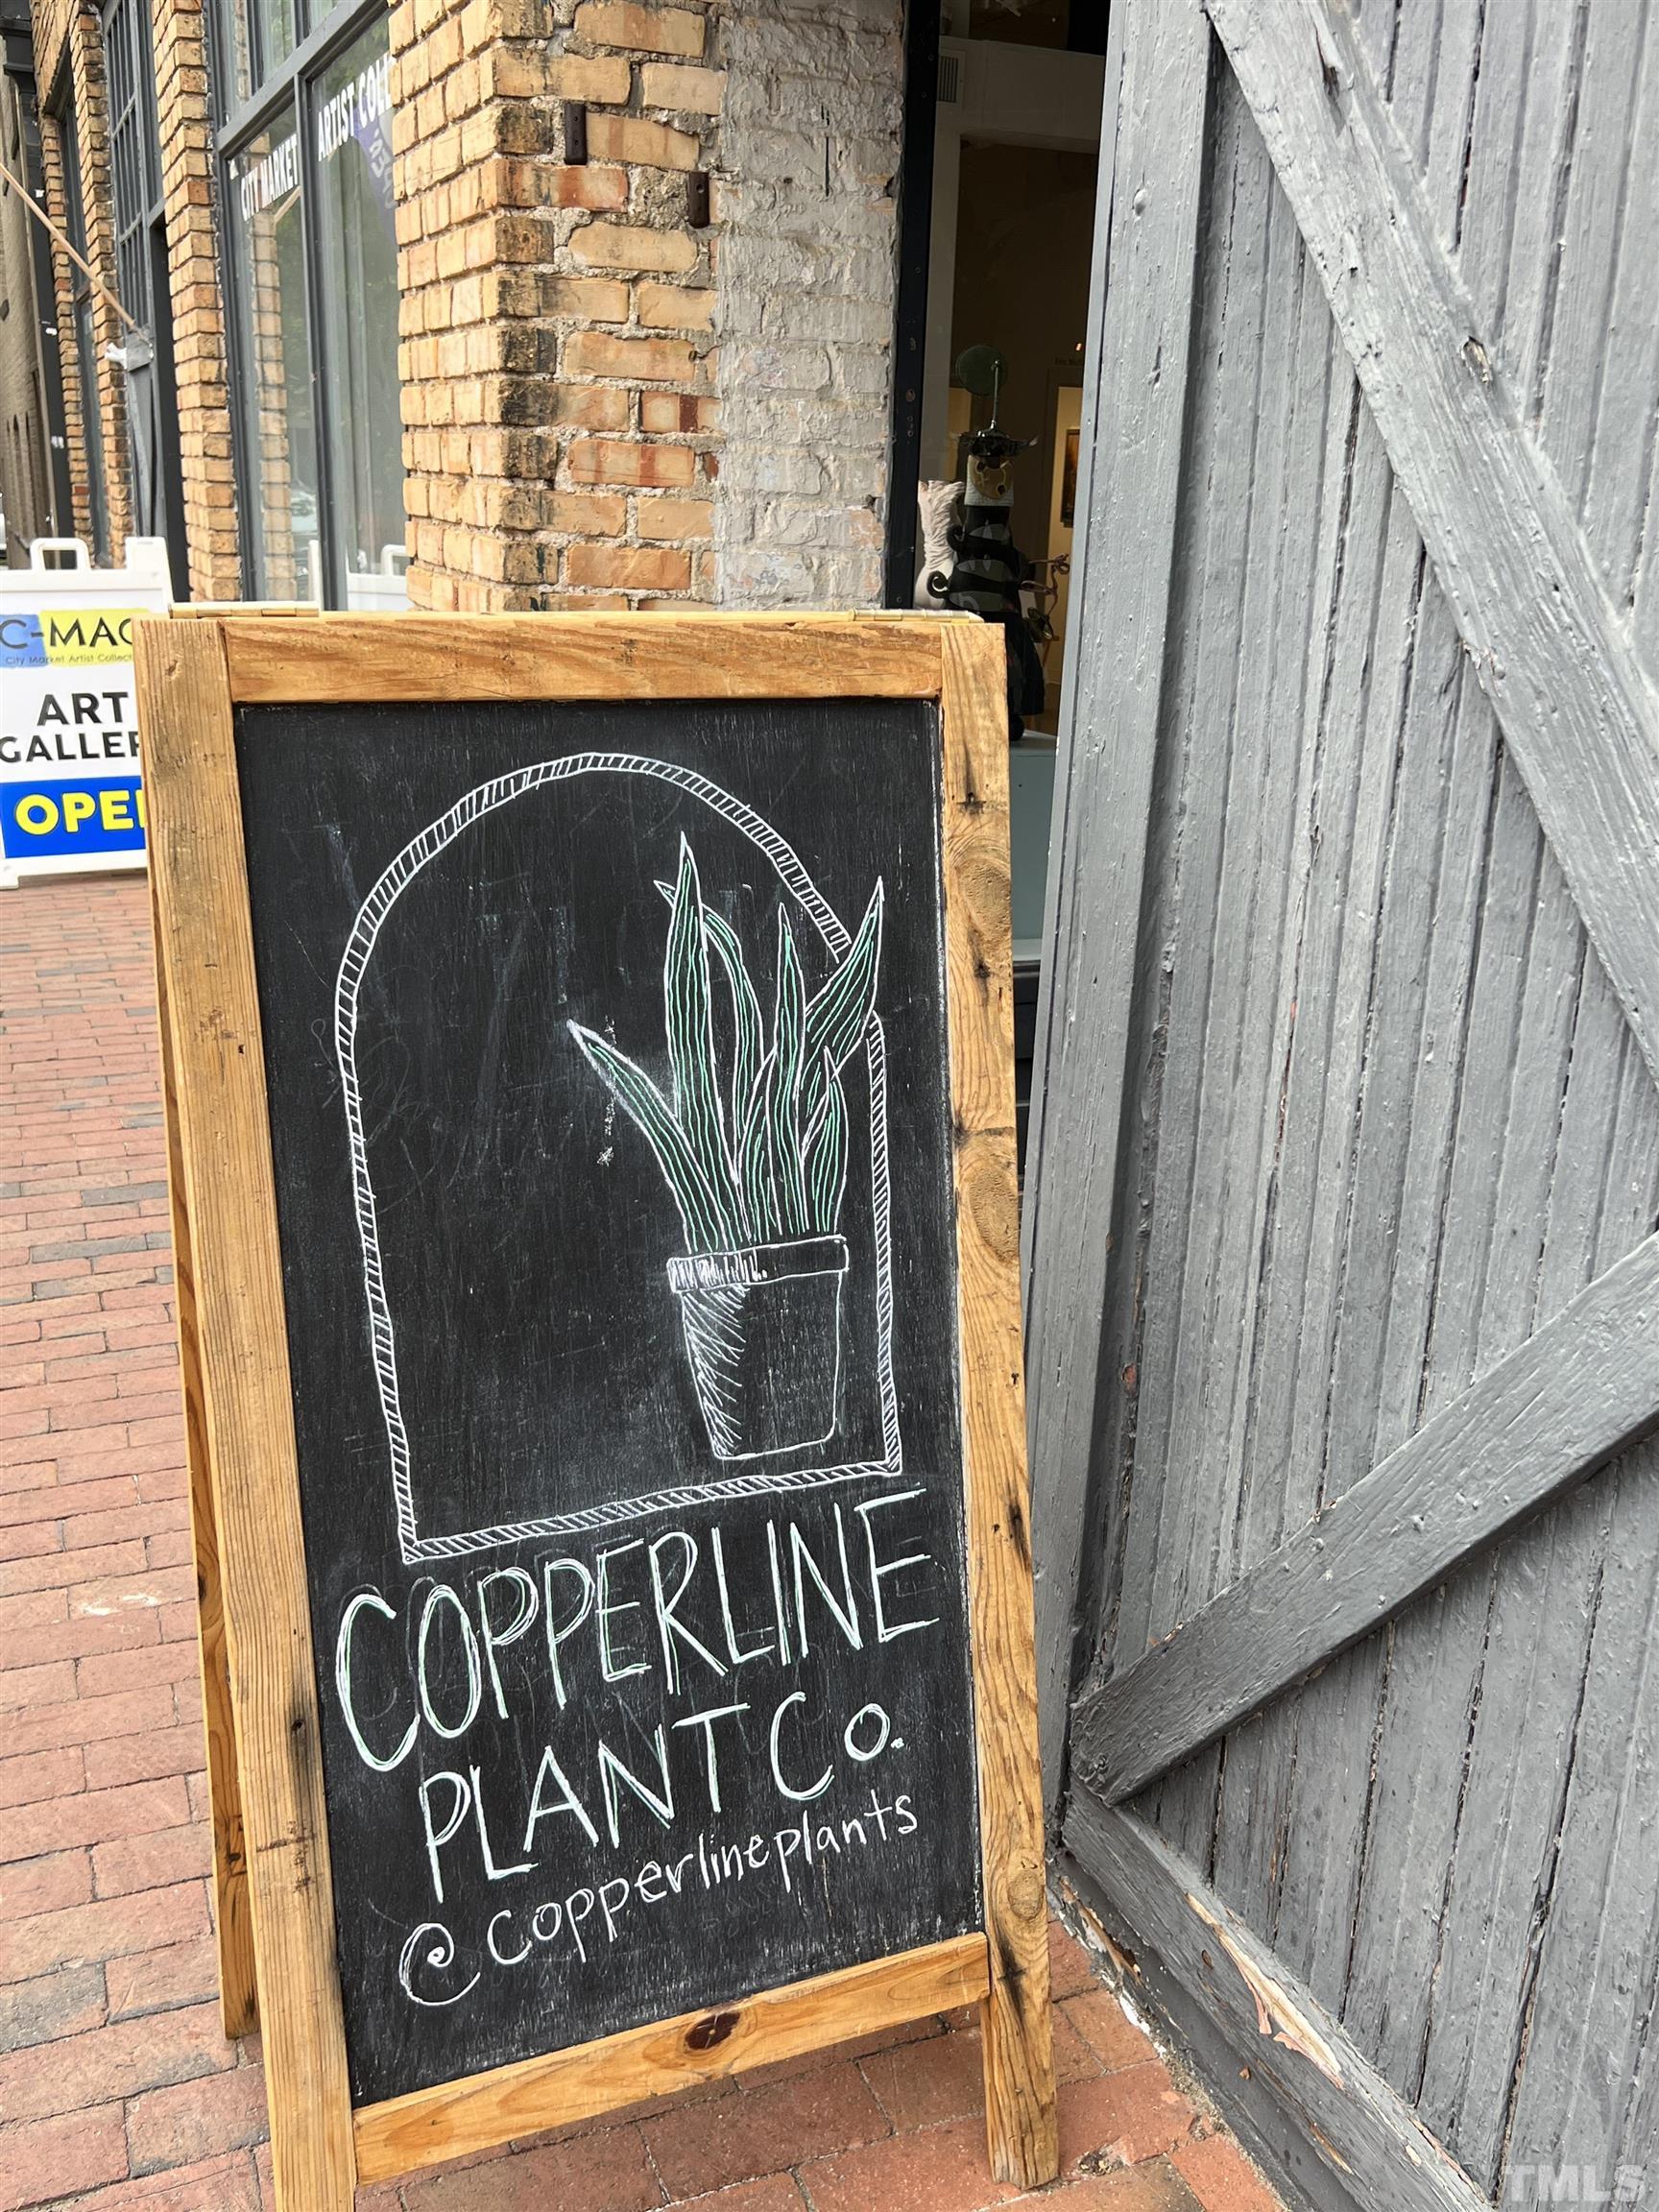 CITY MARKET
ARTIST COLL
C-MAC
City Market Artist Collect
ART
GALLER
OPEN
COPPERLINE
PLANT Co.
@copperlineplants
TMLS